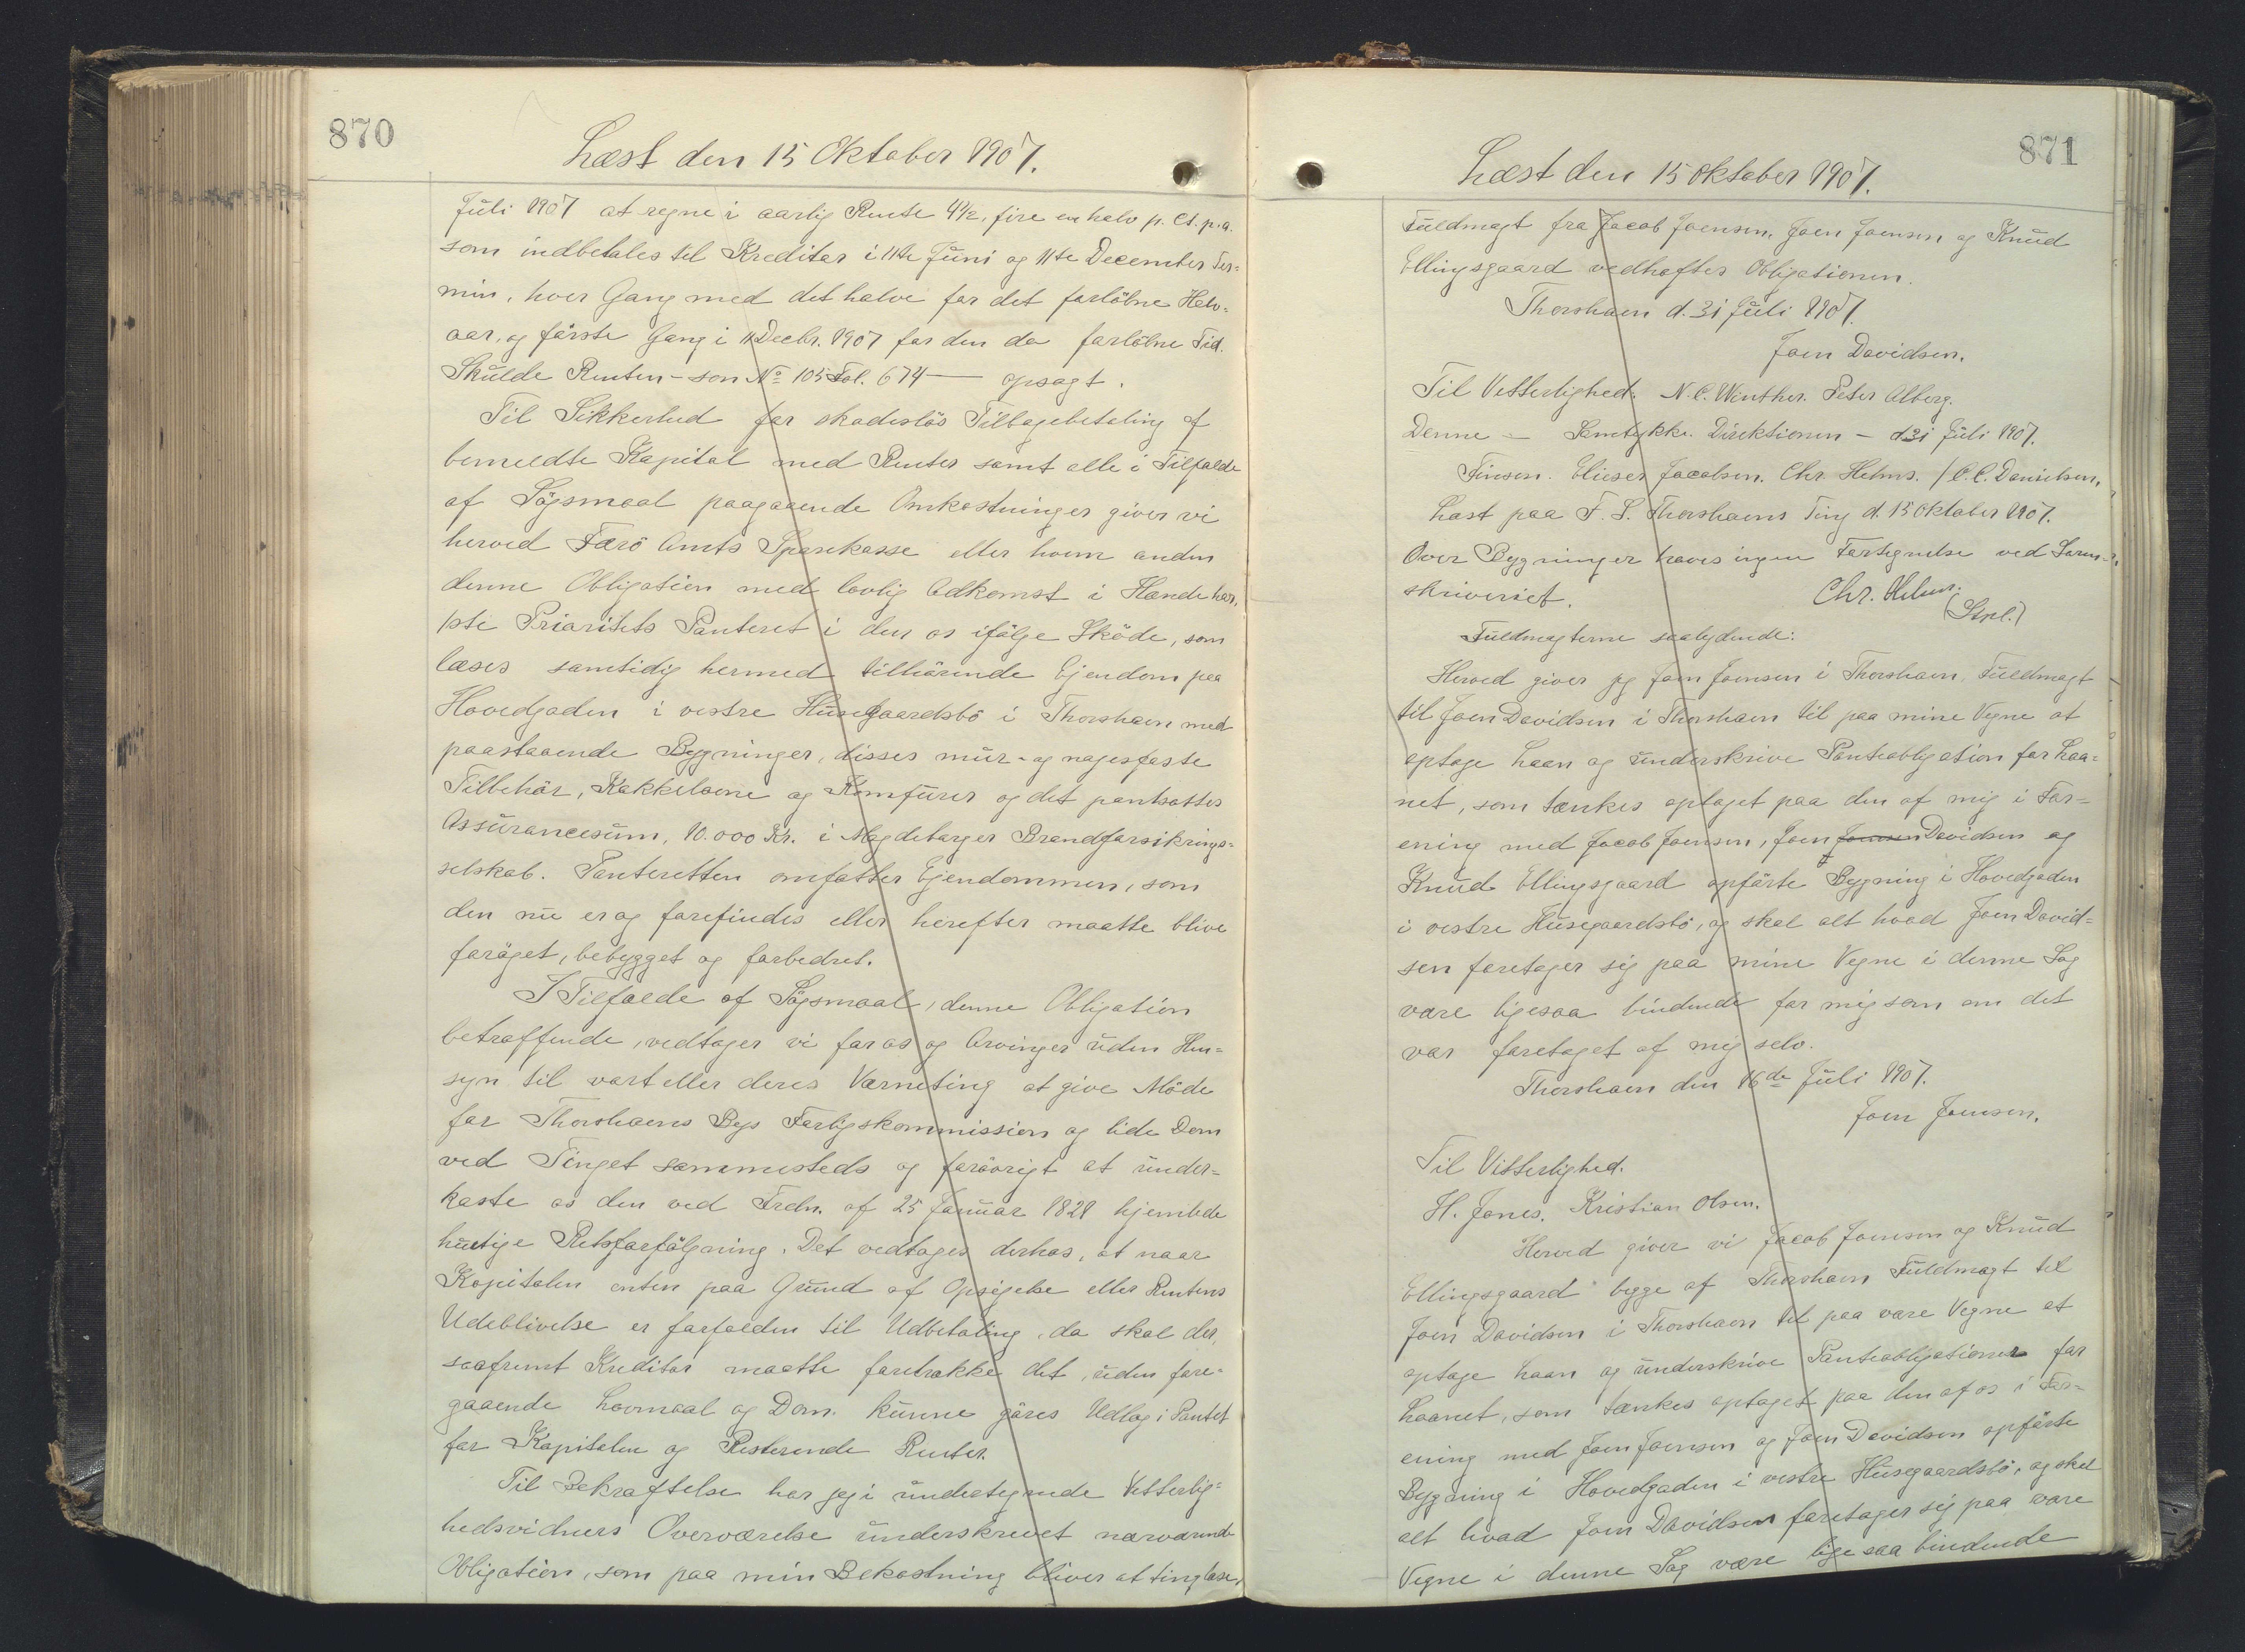 870
Læst den 15 Oktober 1907.
Juli 1907 at regne i aarlig Rente 4½, fire en halv p. Ct. p.a.
som indbetales til Kreditor i 11te Juni og 11te December Ter=
min, hver Gang med det halve for det forløbne Halv=
aar, og første Gang i 11 Decbr. 1907 for den da forløbne Tid.
Skulde Renten - som No 105 Fol. 674 — opsagt.
Til Sikkerhed for skadesløs Tilbagebetaling af
bemeldte Kapital med Renter samt alle i Tilfælde
af Søgsmaal paagaaende Omkostninger giver vi
herved Færø Amts Sparekasse eller hvem anden
denne Obligation med lovlig Adkomst i Hænde har,
1ste Prioritets Panteret i den os ifølge Skøde, som
læses samtidig hermed tilhørende Ejendom paa
Hovedgaden i vestre Husegaardsbø i Thorshavn med
paastaaende Bygninger, disses mur- og nagelfaste
Tilbehør, Kakkelovne og Komfurer og det pantsattes
Assurancesum, 10.000 Kr. i Magdeborger Brandforsikrings=
selskab. Panteretten omfatter Ejendommen, som
den nu er og forefindes eller herefter maatte blive
forøget, bebygget og forbedret.
I Tilfælde af Søgsmaal, denne Obligation
betræffende, vedtager vi for os og Arvinger uden Hen=
syn til vort eller deres Værneting at give Møde
for Thorshavns Bys Forligskommission og lide Dom
ved Tinget sammesteds og forøvrigt at under=
kaste os den ved Frdn. af 25 Januar 1828 hjemlede
hurtige Retsforfølgning. Det vedtages derhos, at naar
Kapitalen enten paa Grund af Opsigelse eller Rentens
Udeblivelse er forfalden til Udbetaling, da skal der,
saafremt Kreditor maatte foretrække det, uden fore=
gaaende Lovmaal og Dom. kunne gøres Udlæg i Pantet
for Kapitalen og Resterende Renter.
Til Bekræftelse har jeg i undertegnede Vitterlig=
hedsvidners Overværelse underskrevet nærværende
Obligation, som paa min Bekostning bliver at tinglæse,
871
Læst den 15 Oktober 1907.
Fuldmagt fra Jacob Joensen, Joen Joensen og Knud
Ellingsgaard vedhæftes Obligationen.
Thorshavn d. 31 Juli 1907.
Joen Davidsen.
Til Vitterlighed: N. C. Winther. Peter Alberg.
Denne — Samtykke. Direktionen - d. 31 Juli 1907.
Finsen. Elieser Jacobsen. Chr. Helms. / C. C. Danielsen,
Læst paa F. S. Thorshavns Ting d. 15 Oktober 1907.
Over Bygninger haves ingen Fortegnelse ved Soren=
skriveriet.
Chr. Helms.
(Stpl.)
Fuldmagterne saalydende:
Herved giver jeg Joen Joensen i Thorshavn, Fuldmagt
til Joen Davidsen i Thorshavn til paa mine Vegne at
optage Laan og underskrive Panteobligation for Laa=
net, som tænkes optaget paa den af mig i For=
ening med Jacob Joensen, Joen Joensen Davidsen og
Knud Ellingsgaard opførte Bygning i Hovedgaden
i vestre Husegaardsbø, og skal alt hvad Joen David=
sen foretager sig paa mine Vegne i denne Sag
være ligesaa bindende for mig som om det
var foretaget af mig selv.
Thorshavn den 16de Juli 1907.
Joen Joensen.
Til Vitterlighed.
H. Jones. Kristian Olsen.
Herved giver vi Jacob Joensen og Knud
Ellingsgaard begge af Thorshavn Fuldmagt til
Joen Davidsen i Thorshavn til paa vore Vegne at
optage Laan og underskrive Panteobligationer for
Laanet, som tænkes optaget paa den af os i For=
ening med Joen Joensen og Joen Davidsen opførte
Bygning i Hovedgaden i vestre Husegaardsbø, og skal
alt hvad Joen Davidsen foretager sig paa vore
Vegne i denne Sag være lige saa bindende